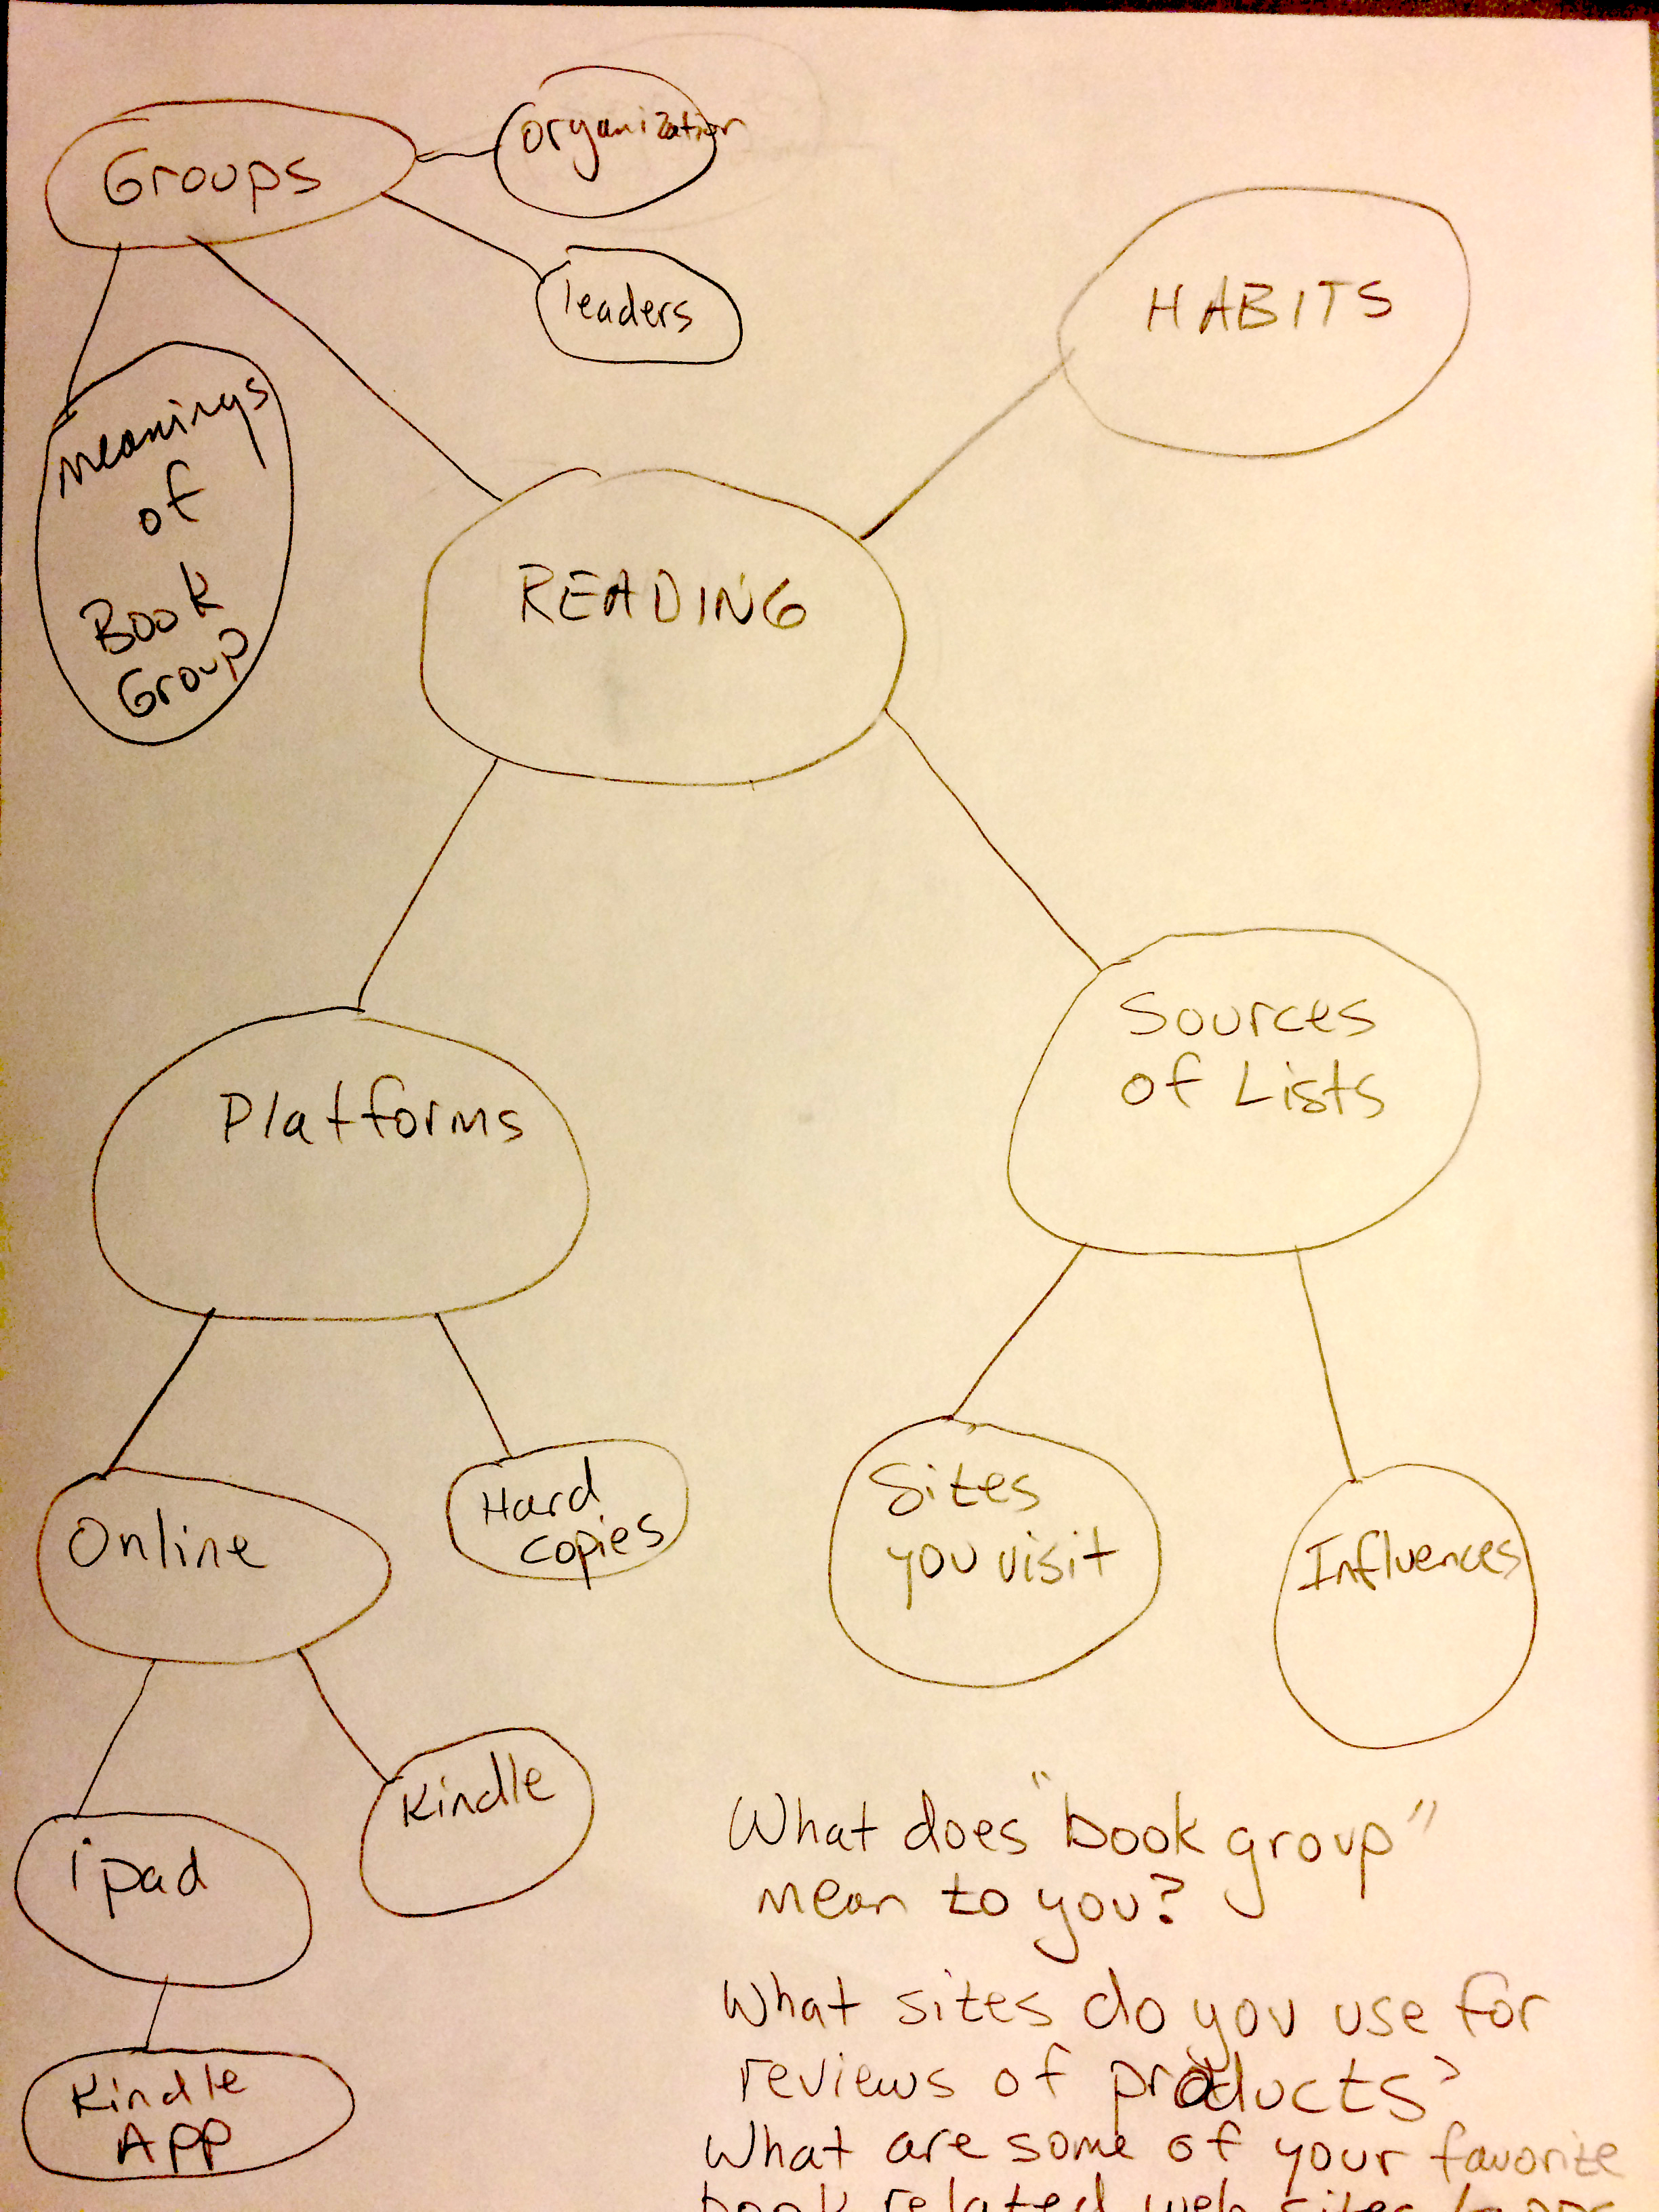 organization
Groups
leaders
HABITS
meanings
of
Book
Group
READING
Sources
of Lists
Platforms
Sites
you visit
Hard
copies
Online
Influences
Kindle
"
What does book group"
mean to you?
ipad
What sites do you use for
reviews of products?
Kindle
APP
What are some of your favorite
book related web sites